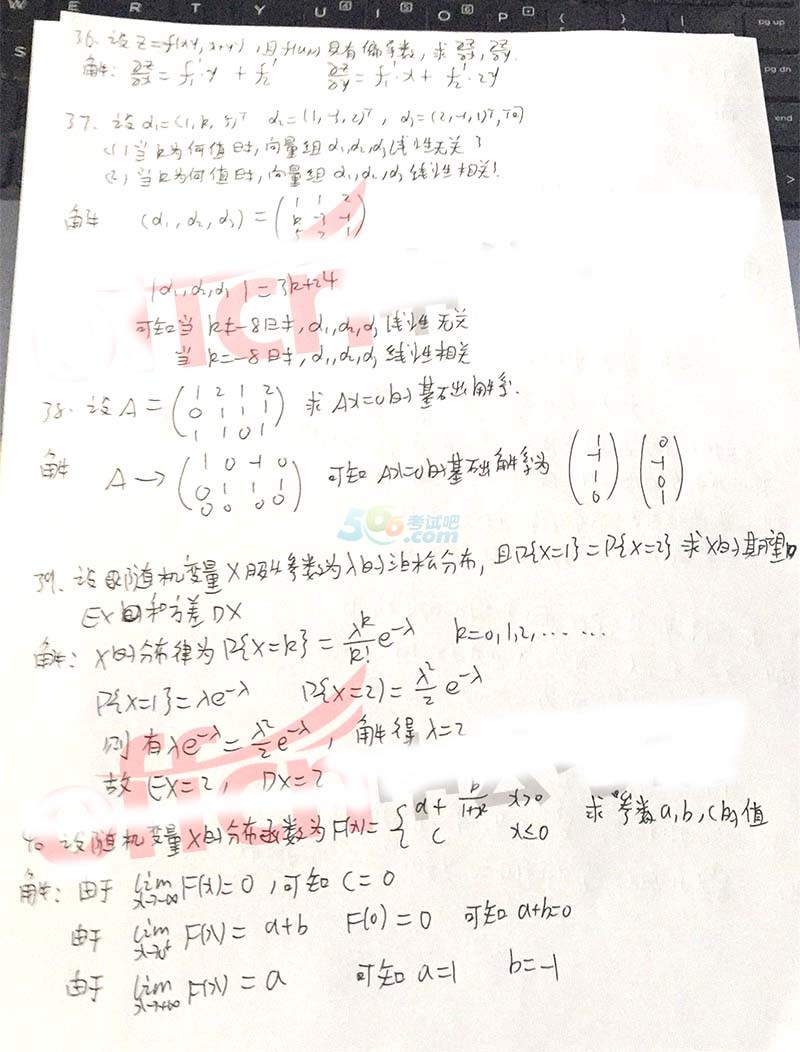 36. 设 Z=f(xy, x+y²), 且 f(u,v) 具有偏导数, 求 ∂z/∂x, ∂z/∂y.
解: ∂z/∂x = f₁'·y + f₂' ∂z/∂y = f₁'·x + f₂'·2y
37. 设 α₁=(1, k, 5)ᵀ α₂=(1, -3, 2)ᵀ, α₃=(2, -1, 1)ᵀ, 问
(1) 当k为何值时, 向量组 α₁,α₂,α₃ 线性无关?
(2) 当k为何值时, 向量组 α₁,α₂,α₃ 线性相关!
解 (α₁, α₂, α₃) = (1 1 2
k -3 -1
5 2 1)
|α₁,α₂,α₃| = 3k+24
可知当 k≠-8时, α₁,α₂,α₃ 线性无关
当 k=-8时, α₁,α₂,α₃ 线性相关
38. 设 A = (1 2 1 2
0 1 1 1
1 1 0 1) 求 Ax=0的基础解系.
解 A → (1 0 -1 0
0 1 1 1
0 0 0 0) 可知 Ax=0的基础解系为 (1 -1 1 0) (0 -1 0 1)
566考试吧
.com
39. 设随机变量X服从参数为λ的泊松分布, 且P{X=1}=P{X=2} 求X的期望
EX和方差DX
解: X的分布律为P{X=k} = λᵏ/k! e^-λ k=0,1,2,……
P{X=1}=λe^-λ P{X=2)= λ²/2 e^-λ
则有λe^-λ = λ²/2 e^-λ, 解得λ=2
故EX=2, DX=2
40 设随机变量X的分布函数为F(x)= { a + b/(1+x²) x>0 求参数a,b,c的值
c x≤0
解: 由于 lim x→-∞ F(x)=0, 可知 C=0
由于 lim x→0⁺ F(x) = a+b F(0)=0 可知 a+b=0
由于 lim x→+∞ F(x) = a 可知 a=1 b=-1